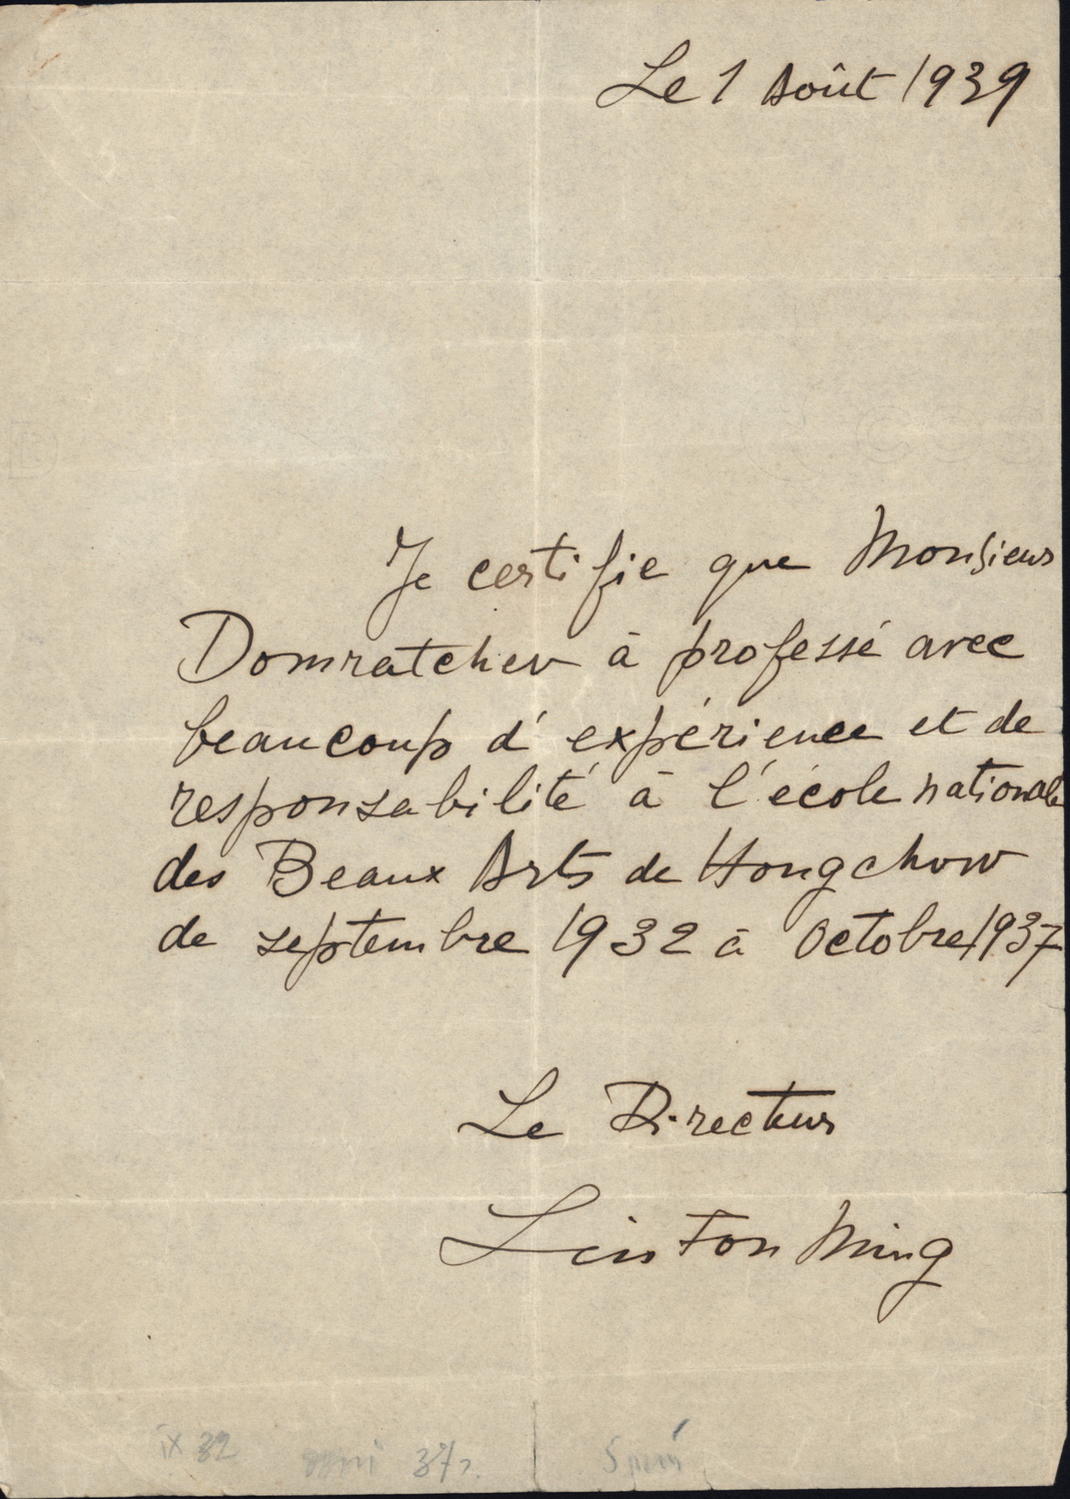 Le 1 Août 1939
Je certifie que Monsieur
Domratchev à professé avec
beaucoup d'expérience et de
responsabilité à l'école nationale
des Beaux Arts de Hongchow
de septembre 1932 à Octobre 1937
Le Directeur
Lin Fon Ming
IX 32
37 г.